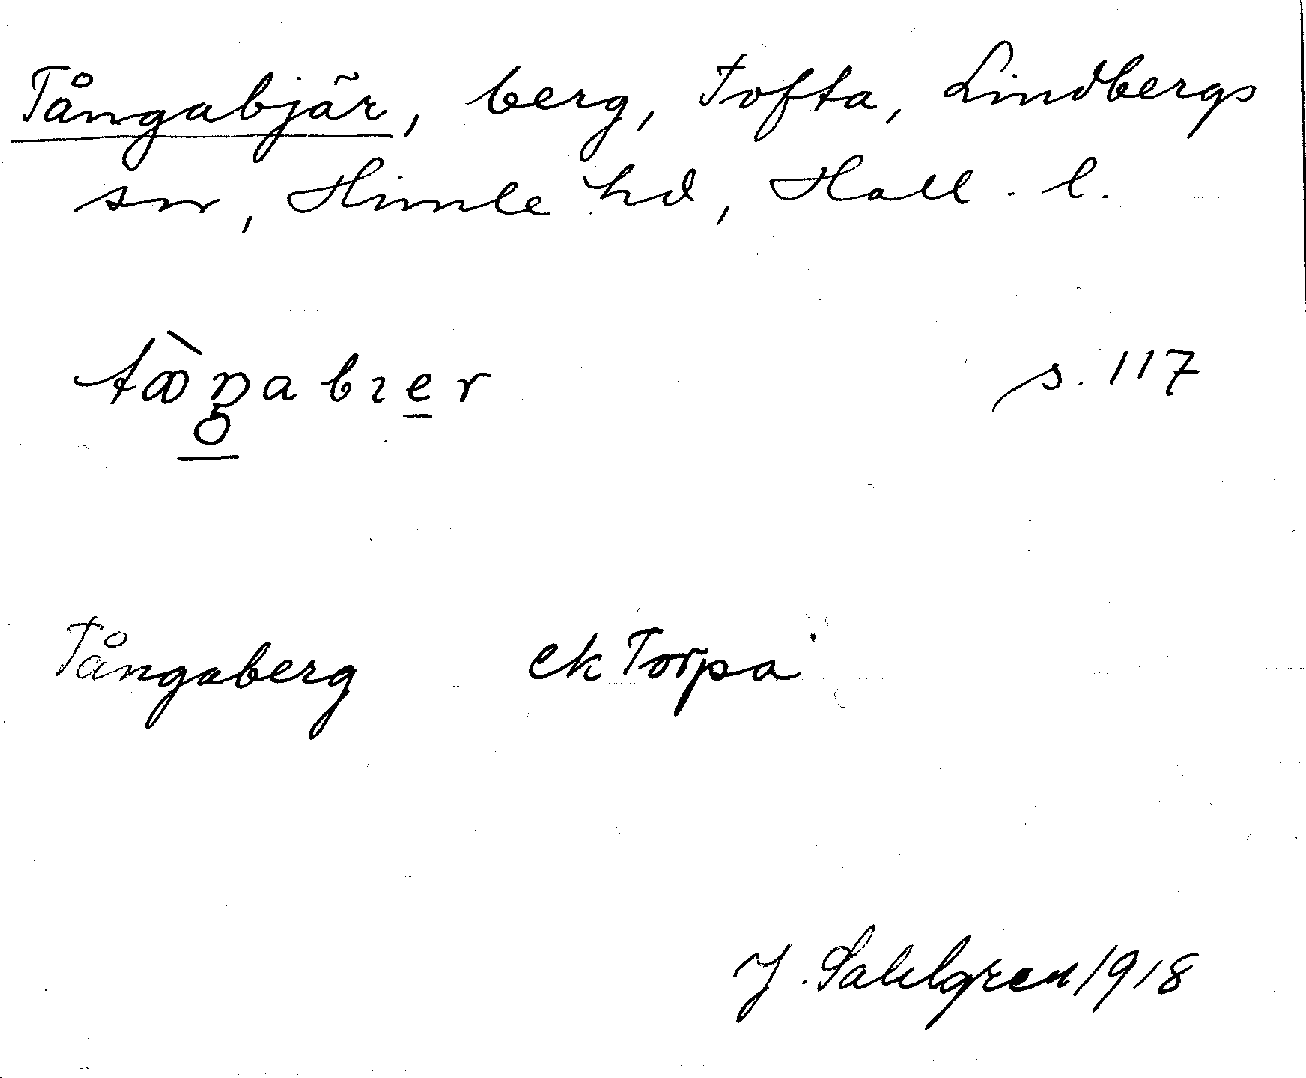 Tångabjär, berg, Tofta, Lindbergs
sn, Himle hd, Hall. l.
s. 117
Tångaberg ek Torpa
J. Sahlgren 1918